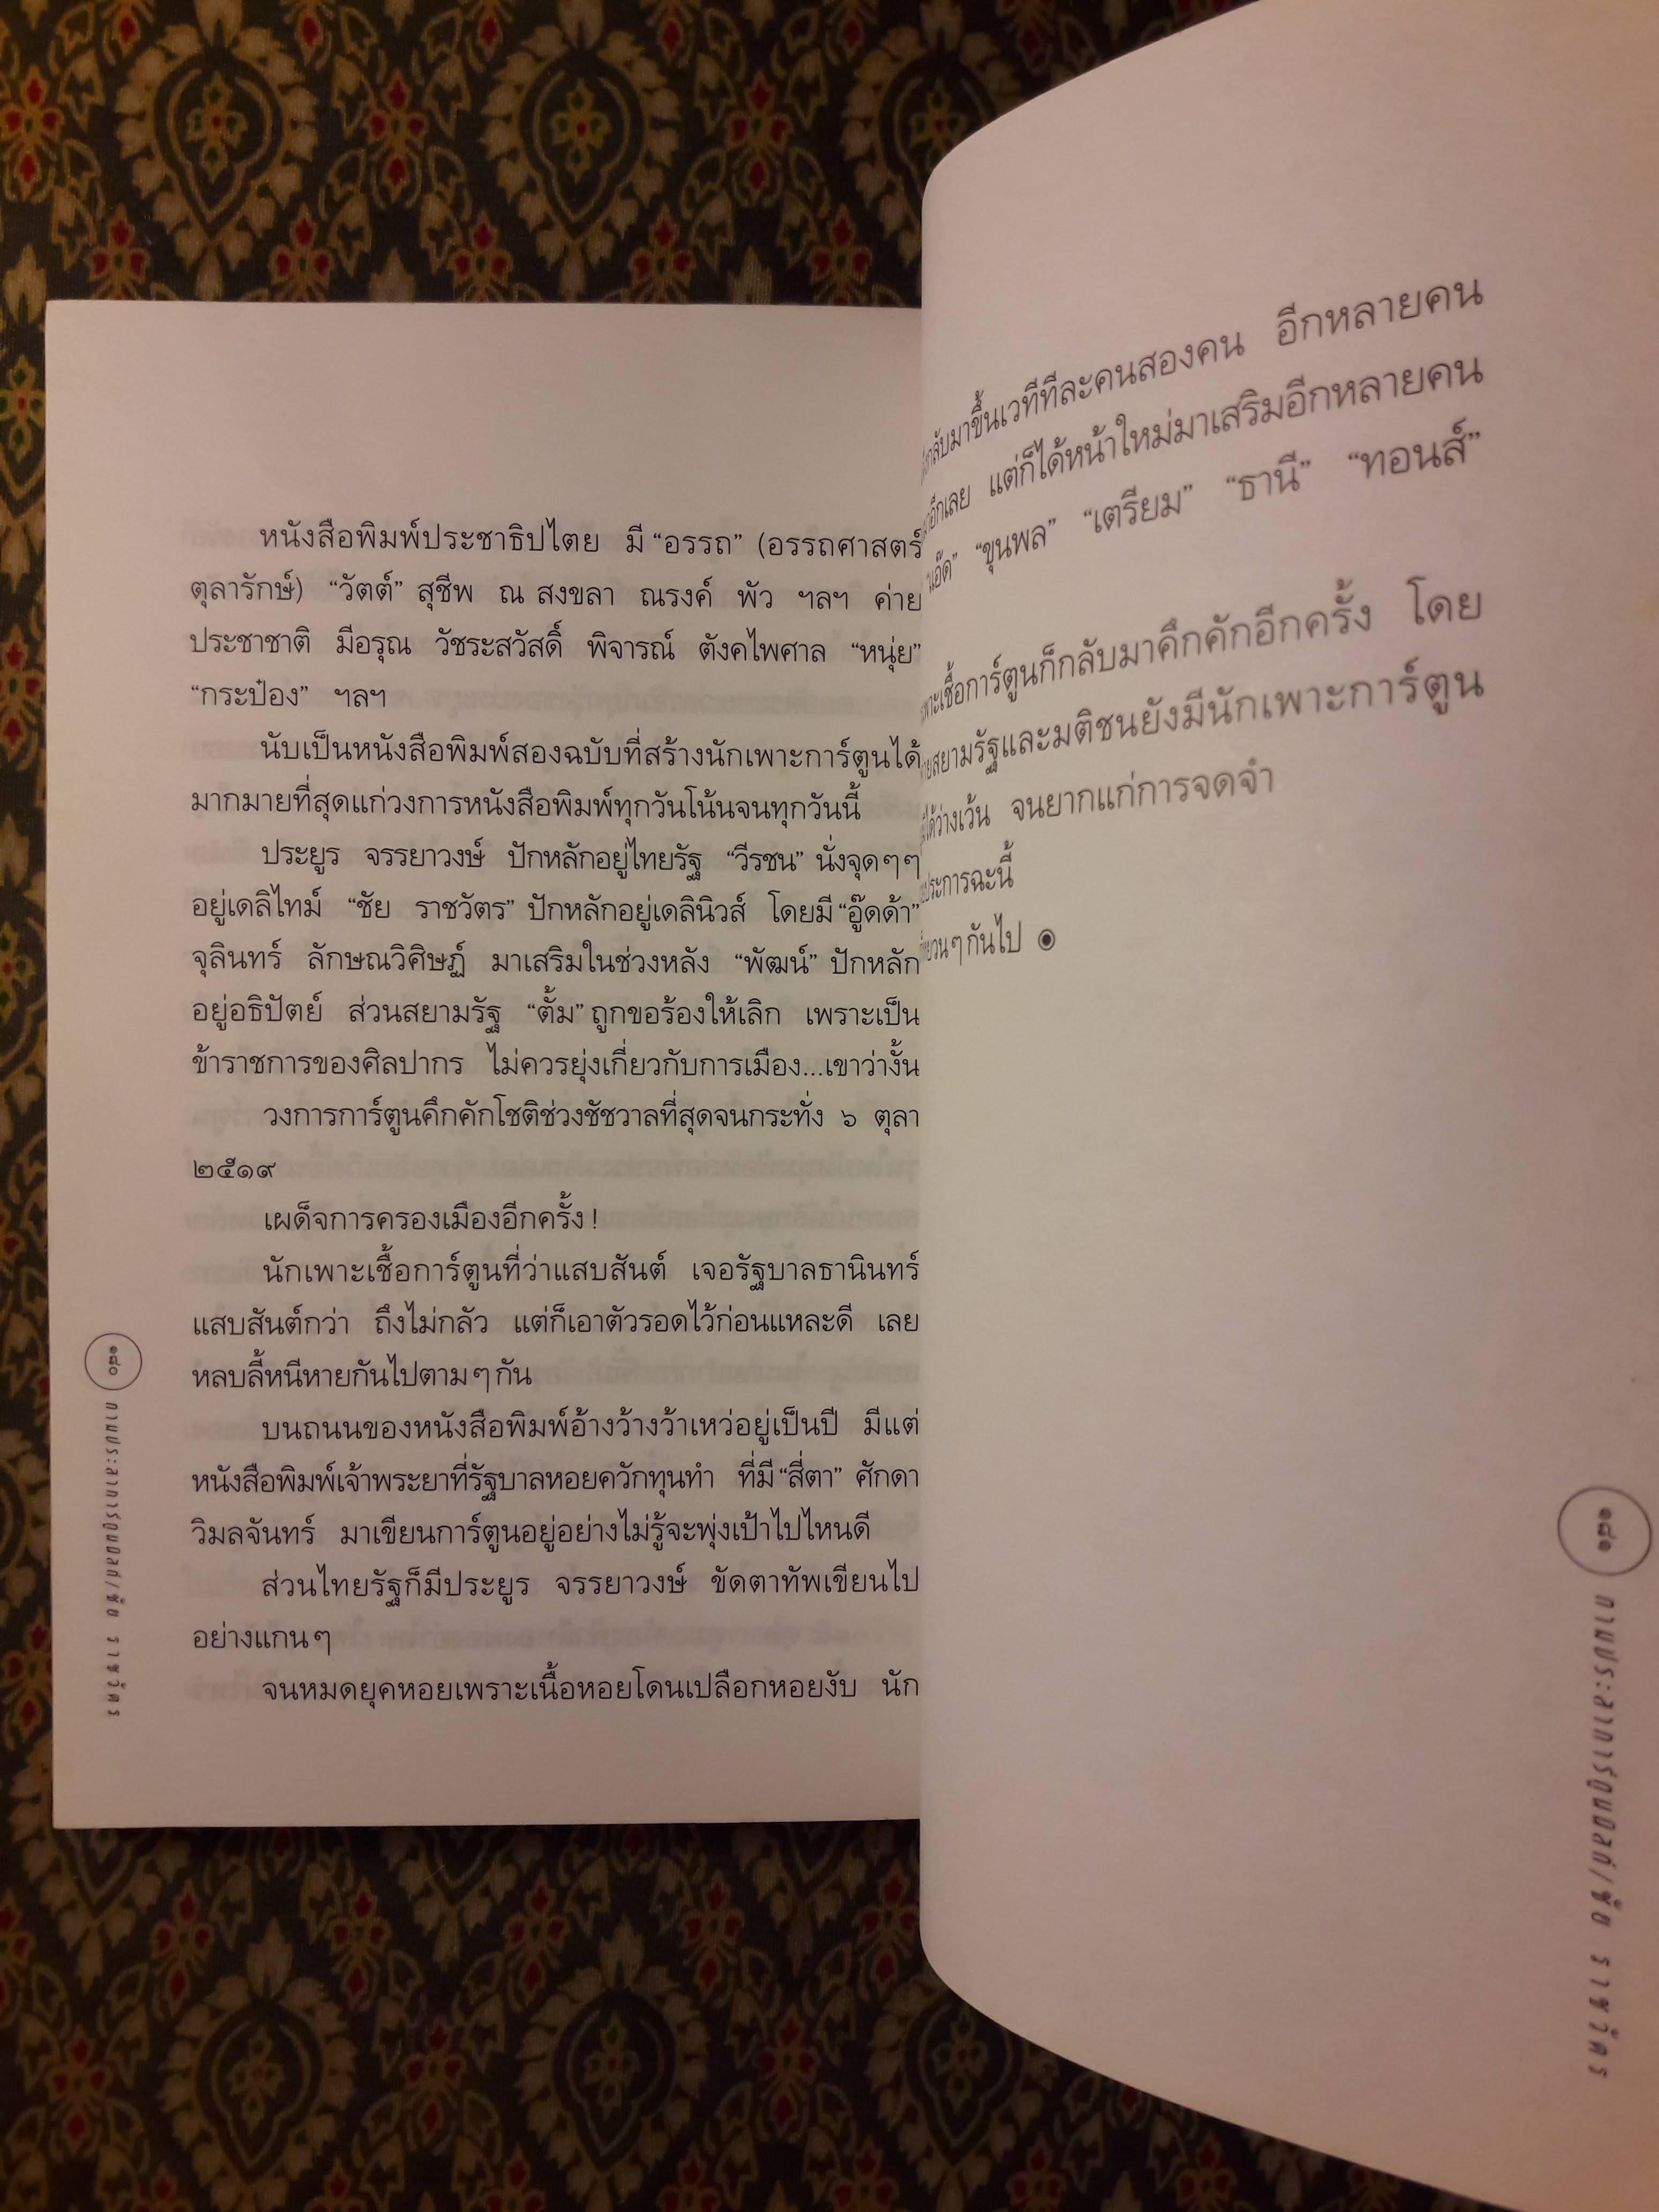 หนังสือพิมพ์ประชาธิปไตย มี “อรรถ” (อรรถศาสตร์
ตุลารักษ์) “วัตต์” สุชีพ ณ สงขลา ณรงค์ พัว ฯลฯ ค่าย
ประชาชาติ มีอรุณ วัชระสวัสดิ์ พิจารณ์ ตังคไพศาล “หนุ่ย”
“กระป๋อง” ฯลฯ
นับเป็นหนังสือพิมพ์สองฉบับที่สร้างนักเพาะการ์ตูนได้
มากมายที่สุดแก่วงการหนังสือพิมพ์ทุกวันโน้นจนทุกวันนี้
ประยูร จรรยาวงษ์ ปักหลักอยู่ไทยรัฐ “วีรชน” นั่งจุดๆๆ
อยู่เดลิไทม์ “ชัย ราชวัตร” ปักหลักอยู่เดลินิวส์ โดยมี “อู๊ดด้า”
จุลินทร์ ลักษณวิศิษฏ์ มาเสริมในช่วงหลัง “พัฒน์” ปักหลัก
อยู่อธิปัตย์ ส่วนสยามรัฐ “ตั้ม” ถูกขอร้องให้เลิก เพราะเป็น
ข้าราชการของศิลปากร ไม่ควรยุ่งเกี่ยวกับการเมือง...เขาว่างั้น
วงการการ์ตูนคึกคักโชติช่วงชัชวาลที่สุดจนกระทั่ง ๖ ตุลา
๒๕๑๙
เผด็จการครองเมืองอีกครั้ง !
นักเพาะเชื้อการ์ตูนที่ว่าแสบสันต์ เจอรัฐบาลธานินทร์
แสบสันต์กว่า ถึงไม่กลัว แต่ก็เอาตัวรอดไว้ก่อนแหละดี เลย
หลบลี้หนีหายกันไปตามๆกัน
บนถนนของหนังสือพิมพ์อ้างว้างว้าเหว่อยู่เป็นปี มีแต่
หนังสือพิมพ์เจ้าพระยาที่รัฐบาลหอยควักทุนทำ ที่มี “สี่ตา” ศักดา
วิมลจันทร์ มาเขียนการ์ตูนอยู่อย่างไม่รู้จะพุ่งเป้าไปไหนดี
ส่วนไทยรัฐก็มีประยูร จรรยาวงษ์ ขัดตาทัพเขียนไป
อย่างแกนๆ
จนหมดยุคหอยเพราะเนื้อหอยโดนเปลือกหอยงับ นัก
๑๘๐
ราชวัตร
กลับมาขึ้นเวทีทีละคนสองคน อีกหลายคน
อีกเลย แต่ก็ได้หน้าใหม่มาเสริมอีกหลายคน
“ขุนพล” “เตรียม” “ธานี” “ทอนส์”
เชื้อการ์ตูนก็กลับมาคึกคักอีกครั้ง โดย
สยามรัฐและมติชนยังมีนักเพาะการ์ตูน
ได้ว่างเว้น จนยากแก่การจดจำ
ประการฉะนี้
กันไป
๑๘๑
ราชวัตร